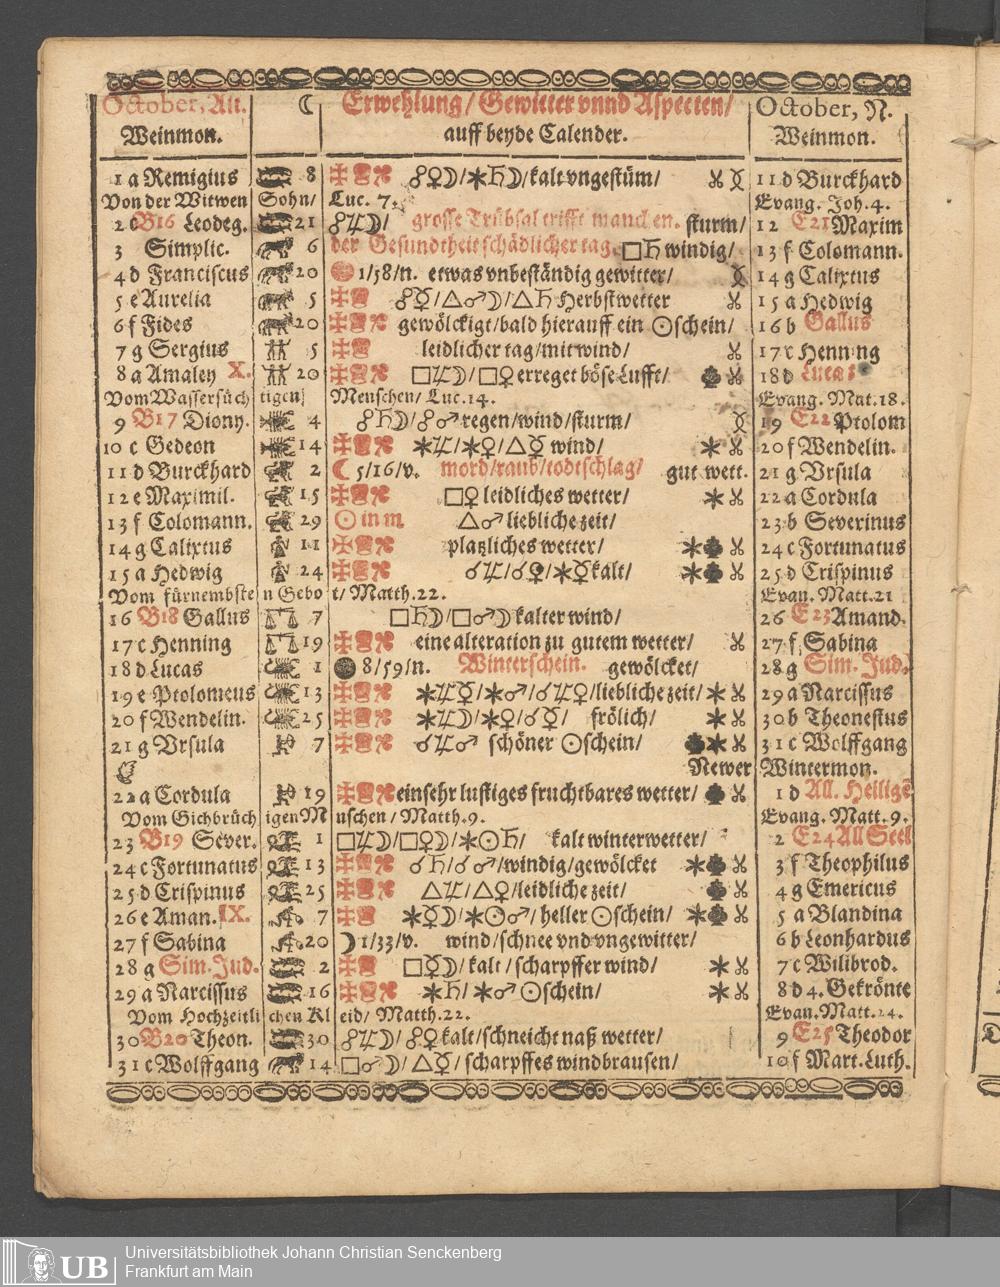 October, Alt. ☾ Erwehlung/ Gewitter vnnd Aspecten/ October, N.
Weinmon. auff beyde Calender. Weinmon.
1 a Remigius 8 ☍♀☽/✶♄☽/kalt vngestüm/ 11 d Burckhard
Von der Witwen Sohn/ Luc. 7. Evang. Joh. 4.
2 B16 Leodeg. 21 ☍♃☽/ grosse Trübsal trifft manchen. sturm/ 12 E21 Maxim
3 Simplic. 6 der Gesundtheit schädlicher tag. □♄ windig/ 13 f Colomann.
4 d Franciscus 20 1/58/n. etwas vnbeständig gewitter/ 14 g Calixtus
5 e Aurelia 5 ☍☿/△♂☽/△♄ Herbstwetter 15 a Hedwig
6 f Fides 20 gewölckigt/bald hierauff ein ☉schein/ 16 b Gallus
7 g Sergius 5 leidlicher tag/mit wind/ 17 c Henning
8 a Amaley X. 20 □♃☽/□♀ erreget böse Lufft/ 18 d Lucas
Vom Wassersüchtigen Menschen/ Luc. 14. Evang. Mat. 18.
9 B17 Diony. 4 ☍♄☽/☍♂ regen/wind/sturm/ 19 E22 Ptolom
10 c Gedeon 14 ✶♃/✶♀/△☿ wind/ 20 f Wendelin.
11 d Burckhard 2 ☾ 5/16/v. mord/raub/todtschlag/ gut wett. 21 g Vrsula
12 e Maximil. 15 □♀ leidliches wetter/ 22 a Cordula
13 f Colomann. 29 ☉ in ♏ △♂ liebliche zeit/ 23 b Severinus
14 g Calixtus 11 platzliches wetter/ 24 c Fortunatus
15 a Hedwig 24 ☌♃/☌♀/✶☿ kalt/ 25 d Crispinus
Vom fürnembsten Gebot/ Matth. 22. Evan. Matt. 21
16 B18 Gallus 7 □♄☽/□♂☽ kalter wind/ 26 E23 Amand.
17 c Henning 19 eine alteration zu gutem wetter/ 27 f Sabina
18 d Lucas 1 8/59/n. Winterschein. gewölcket/ 28 g Sim. Jud.
19 e Ptolomeus 13 ✶♃☿/✶♂/☌♃♀/liebliche zeit/ 29 a Narcissus
20 f Wendelin. 25 ✶♃☽/✶♀/☌☿/ frölich/ 30 b Theonestus
21 g Vrsula 7 ☌♃♂ schöner ☉schein/ 31 c Wolffgang
Newer Wintermon.
22 a Cordula 19 ein sehr lustiges fruchtbares wetter/ 1 d All. Heiligē
Vom Gichbrüchigen Menschen/ Matth. 9. Evang. Matt. 9.
23 B19 Sever. 1 □♃☽/□♀☽/✶☉♄/ kalt winterwetter/ 2 E24 All Seel
24 c Fortunatus 13 ☌♄/☌♂/windig/gewölcket 3 f Theophilus
25 d Crispinus 25 △♃/△♀/leidliche zeit/ 4 g Emericus
26 e Aman. IX. 7 ✶☿☽/✶☉♂/ heller ☉schein/ 5 a Blandina
27 f Sabina 20 ☽ 1/33/v. wind/schnee vnd vngewitter/ 6 b Leonhardus
28 g Sim. Jud. 2 □☿☽/ kalt/scharpffer wind/ 7 c Wilibrod.
29 a Narcissus 16 ✶♄/✶♂ ☉schein/ 8 d 4. Gekrönte
Vom Hochzeitlichen Kleid/ Matth. 22. Evan. Matt. 24.
30 B20 Theon. 30 ☍♃☽/☍♀ kalt/schneicht naß wetter/ 9 E25 Theodor
31 c Wolffgang 14 □♂☽/△☿/scharpffes windbrausen/ 10 f Mart. Luth.
UB Universitätsbibliothek Johann Christian Senckenberg
Frankfurt am Main